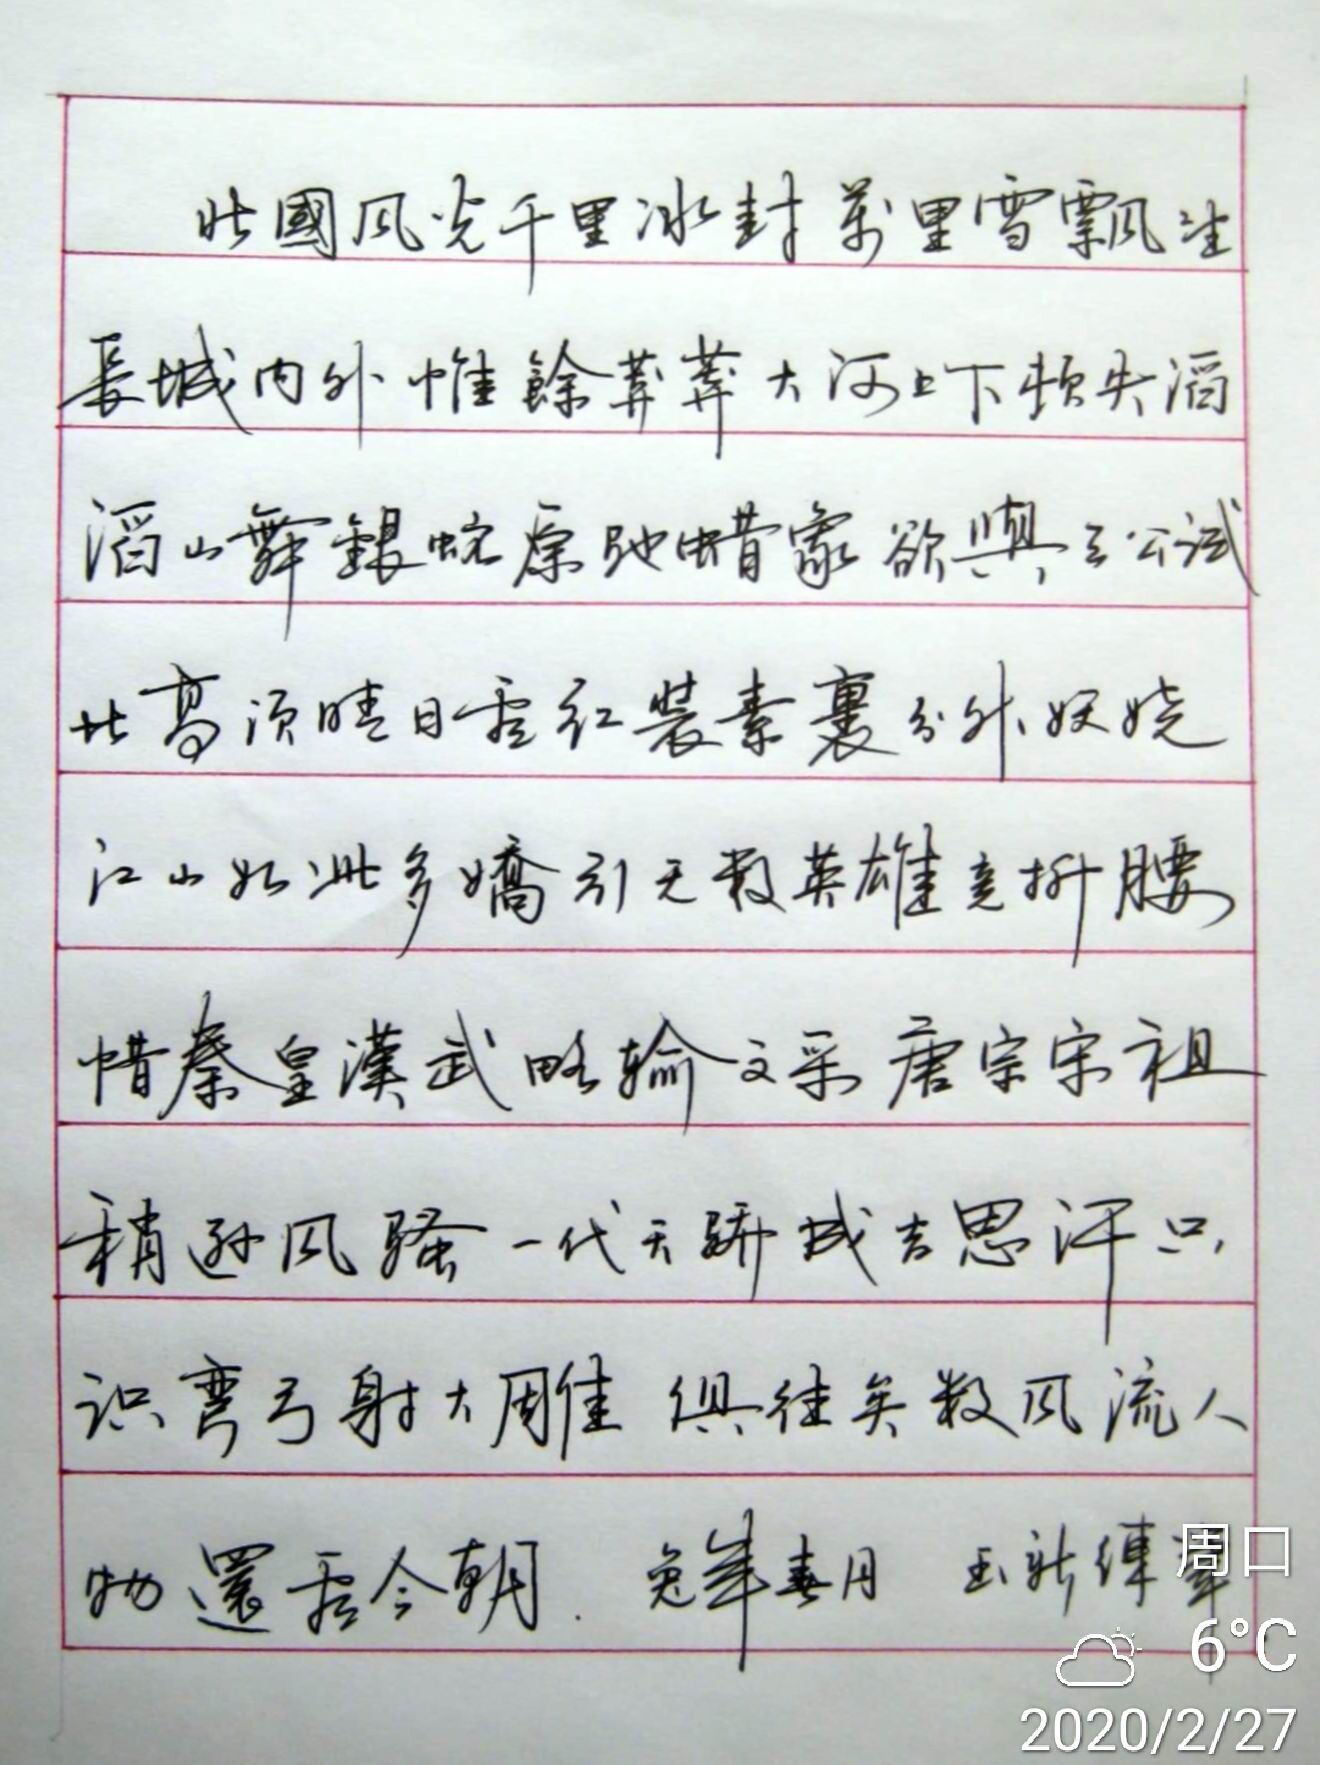 北國风光千里冰封萬里雪飘望
長城内外惟餘莽莽大河上下顿失滔
滔山舞銀蛇原驰蜡象欲與天公试
比高须晴日看红装素裹分外妖娆
江山如此多嬌引无数英雄竞折腰
惜秦皇漢武略输文采唐宗宋祖
稍逊风骚一代天骄成吉思汗只
识弯弓射大雕俱往矣数风流人
物還看今朝. 兔年春月 玉新練筆
周口
6°C
2020/2/27